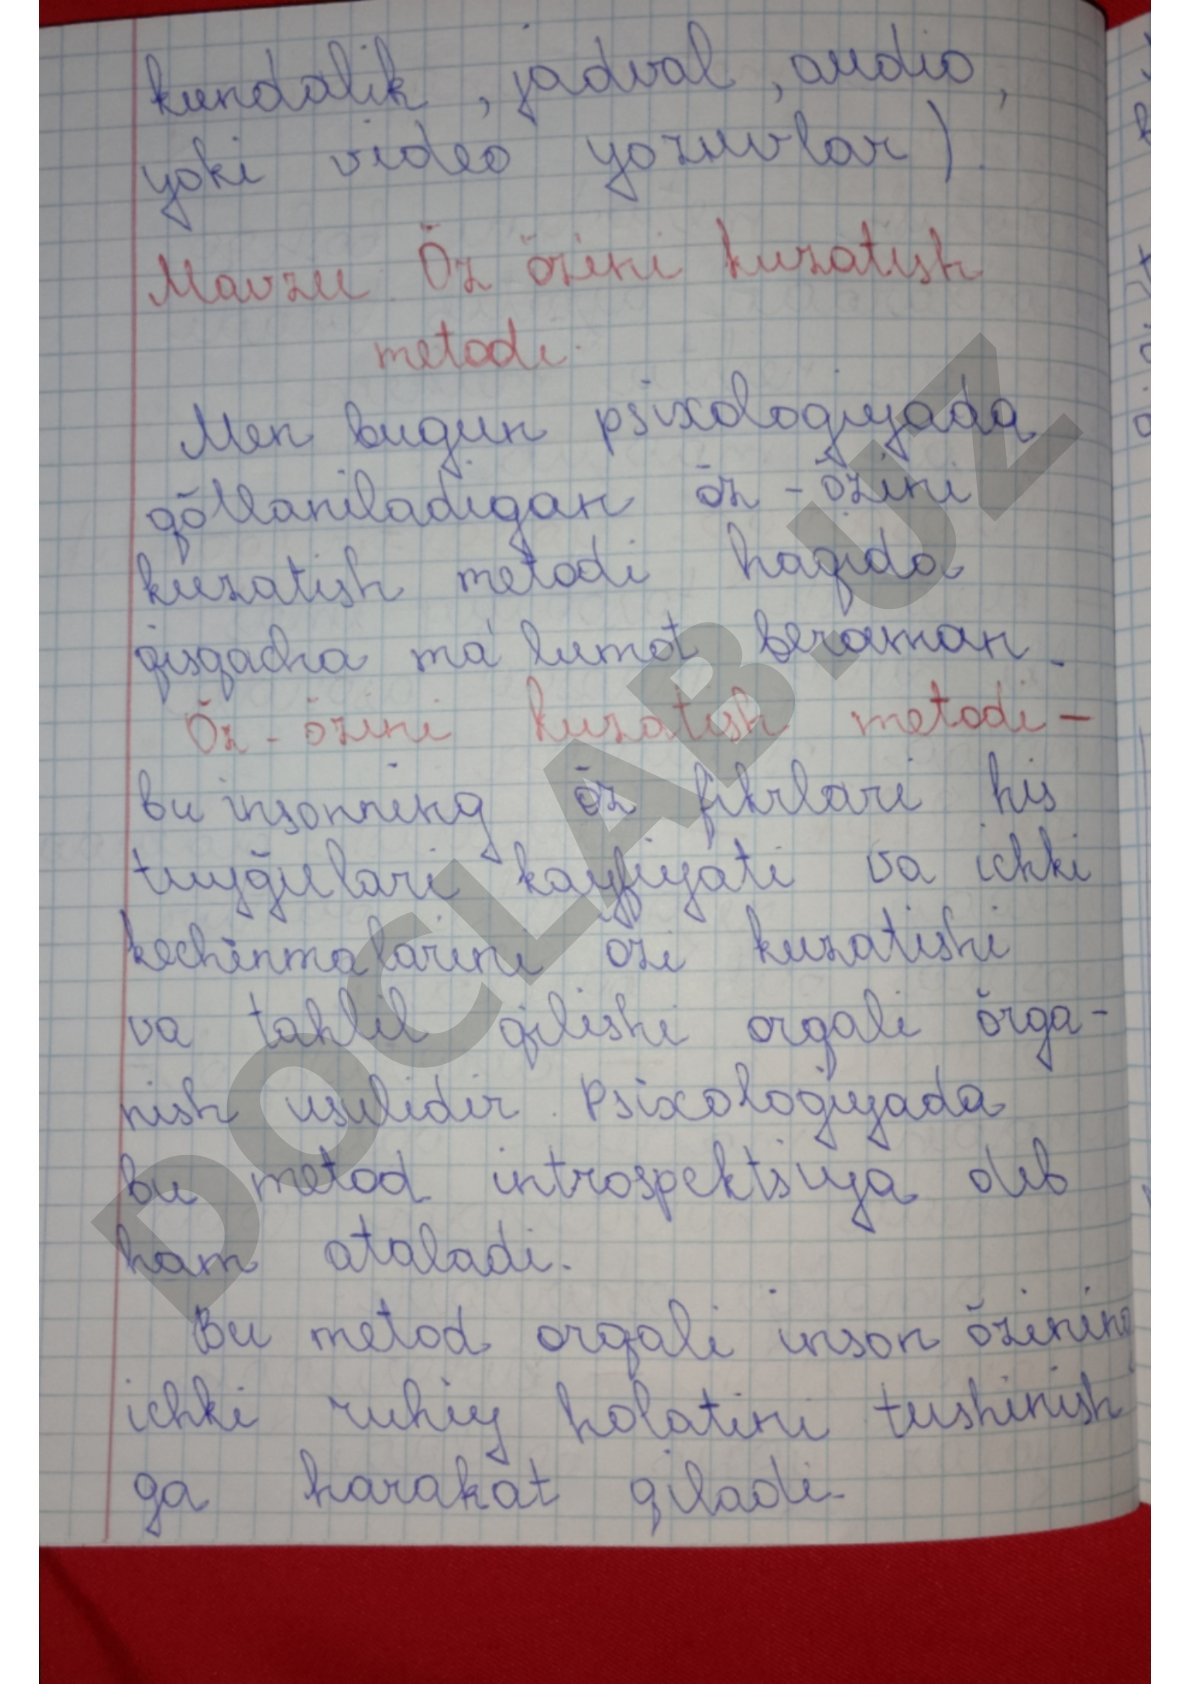 kundalik, jadval, audio,
yoki video yozuvlar).
Mavzu: Õz õzini kuzatish
metodi.
Men bugun psixologiyada
qõllaniladigan õz-õzini
kuzatish metodi haqida
qisqacha ma'lumot beraman.
Õz-õzini kuzatish metodi-
bu insonning õz fikrlari his
tuyğulari kayfiyati va ichki
kechinmalarini ozi kuzatishi
va tahlil qilishi orqali õrga-
nish usulidir. Psixologiyada
bu metod introspektsiya deb
ham ataladi.
Bu metod orqali inson õzining
ichki ruhiy holatini tushinish
ga harakat qiladi.
DOCLAB.UZ